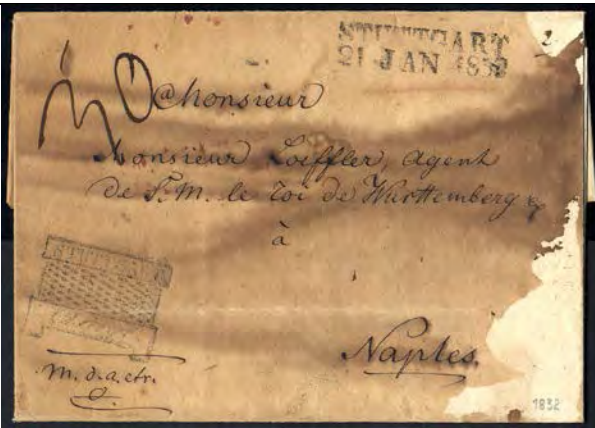 STUTTGART
21 JAN 1832
2
30
a Monsieur
Monsieur Loeffler, Agent
de S. M. le Roi de Württemberg
à
STUTTGART
Naples.
M. d. a. etr.
1832